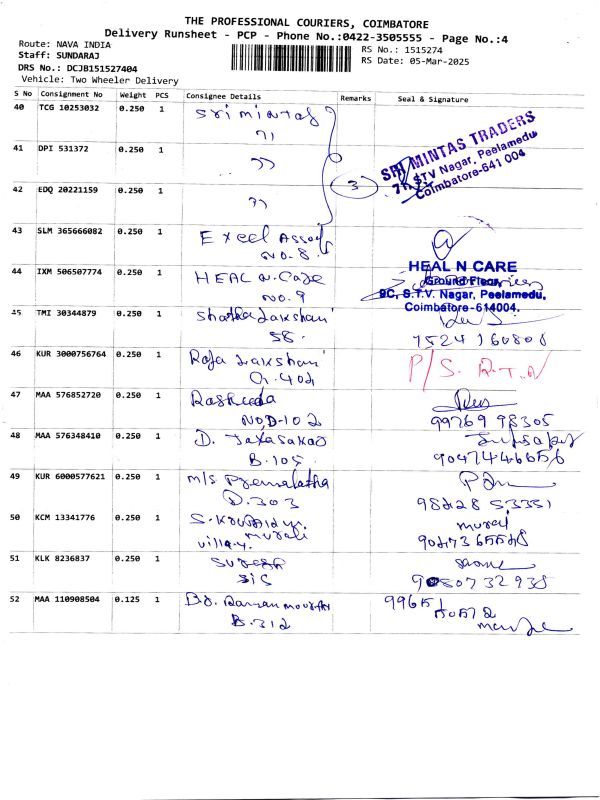 THE PROFESSIONAL COURIERS, COIMBATORE
Delivery Runsheet - PCP - Phone No.:0422-3505555 - Page No.:4
Route: NAVA INDIA
RS No.: 1515274
Staff: SUNDARAJ
RS Date: 05-Mar-2025
DRS No.: DCJB151527404
Vehicle: Two Wheeler Delivery
S No Consignment No Weight PCS Consignee Details Remarks Seal & Signature
40 TCG 10253032 0.250 1 Sri mintas
71
41 DPI 531372 0.250 1 77
SRI MINTAS TRADERS
S.T.V Nagar, Peelamedu
Coimbatore-641 004
42 EDQ 20221159 0.250 1 77 3
43 SLM 365666082 0.250 1 Excel Assoy
NO. 8
44 IXM 506507774 0.250 1 HEAL N. Care
NO. 9
HEAL N CARE
Ground Floor,
9C, S.T.V. Nagar, Peelamedu,
Coimbatore-614004.
45 TMI 30344879 0.250 1 Lakshmi
58.
46 KUR 3000756764 0.250 1 Raja Lakshmi
G. 402
P/S. R.T.N
47 MAA 576852720 0.250 1 Rasheeda
NO, D-102
99769 98305
48 MAA 576348410 0.250 1 D.
B. 105
9047446656
49 KUR 6000577621 0.250 1 m/s Premalatha
D. 303
50 KCM 13341776 0.250 1 murali
murali
51 KLK 8236837 0.250 1 Suresh
9080732938
52 MAA 110908504 0.125 1 Dr.
B. 312